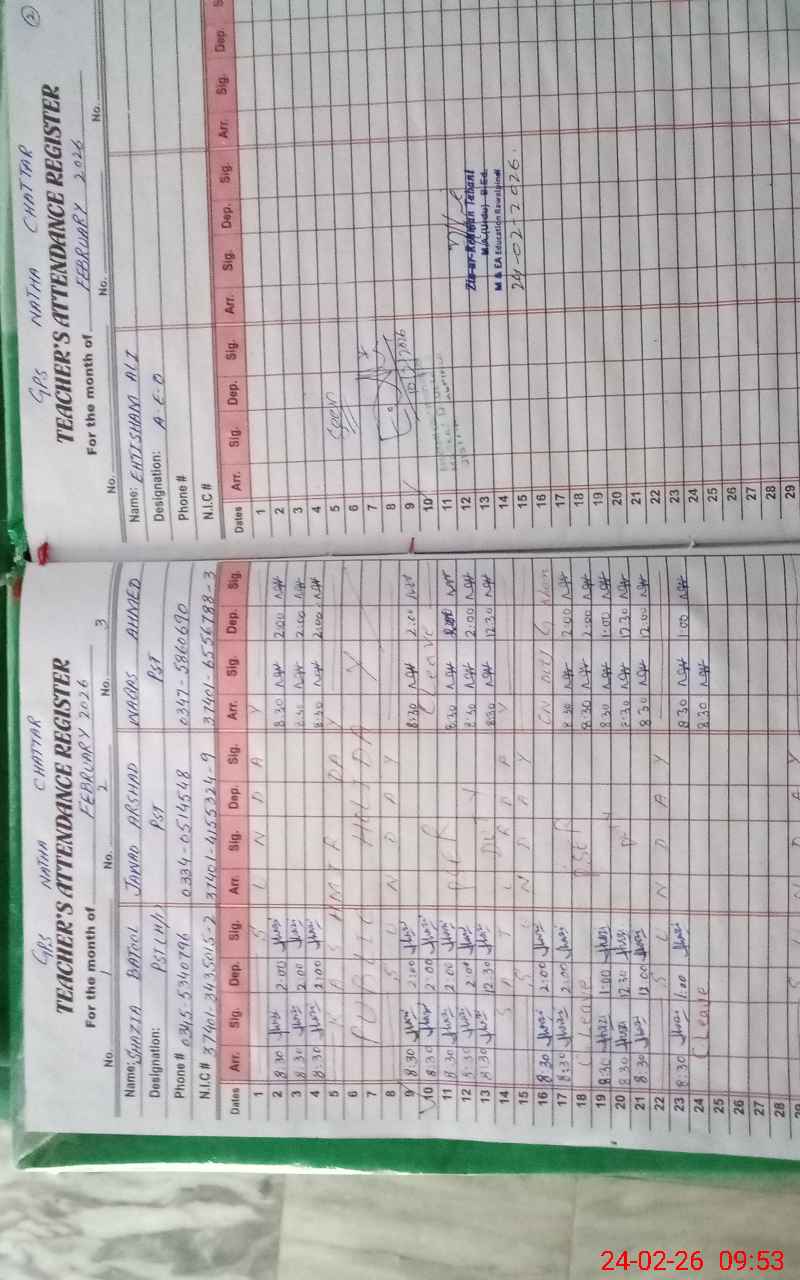 GPS NATHA CHATTAR
TEACHER'S ATTENDANCE REGISTER
For the month of FEBRUARY 2026
No. 1 No. 2 No. 3
Name: SHAZIA BATOOL JAWAD ARSHAD WAQAS AHMED
Designation: PST (H/T) PST PST
Phone # 0345-5340796 0334-0514548 0347-5860690
N.I.C # 37401-3435015-2 37401-4155324-9 37401-6556788-3
Dates Arr. Sig. Dep. Sig. Arr. Sig. Dep. Sig. Arr. Sig. Dep. Sig.
1 S U N D A Y
2 8:30 2:00 8:30 2:00
3 8:30 2:00 8:30 2:00
4 8:30 2:00 8:30 2:00
5 KASHMIR DAY
6 PUBLIC HOLIDAY
7
8 S U N D A Y
9 8:30 2:00 8:30 2:00
10 8:30 2:00 C Leave
11 8:30 2:00 PSER 8:30 2:00
12 8:30 2:00 8:30 2:00
13 8:30 12:30 DUTY 8:30 12:30
14 S A T U R D A Y
15 S U N D A Y
16 8:30 2:00
17 8:30 2:00 8:30 2:00
18 C Leave PSER 8:30 2:00
19 8:30 1:00 8:30 1:00
20 8:30 12:30 8:30 12:30
21 8:30 12:00 8:30 12:00
22 S U N D A Y
23 8:30 1:00 8:30 1:00
24 C Leave 8:30
25
26
27
28
29 S U N D A Y
2
GPS NATHA CHATTAR
TEACHER'S ATTENDANCE REGISTER
For the month of FEBRUARY 2026
No. No. No.
Name: EHTISHAM ALI
Designation: A.E.O
Phone #
N.I.C #
Dates Arr. Sig. Dep. Sig. Arr. Sig. Dep. Sig. Arr. Sig. Dep. S
1
2
3
4
5 Seen
6
7
8
9
10
11
12 Zia-ur-Rehman Tabani
13 M.A (Urdu) B.Ed.
14 M & EA Education Rawalpindi
15 24-02-2026.
16
17
18
19
20
21
22
23
24
25
26
27
28
29
24-02-26 09:53